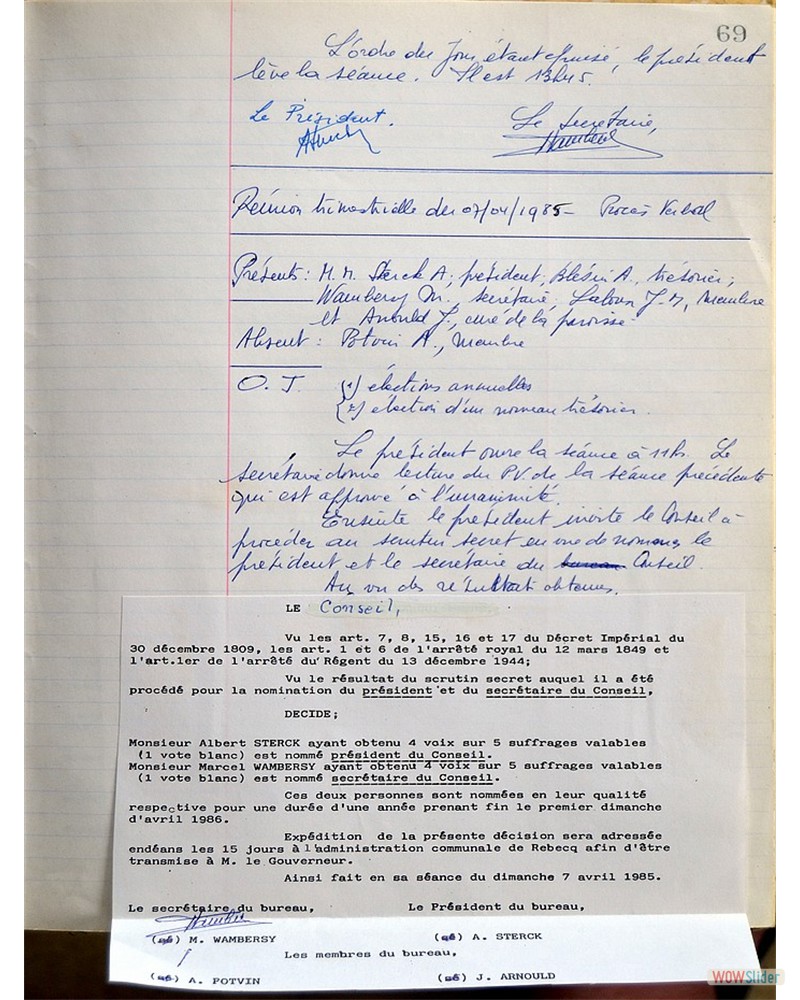 69
L'ordre du jour étant épuisé, le président
lève la séance. Il est 13h45.
Le Président. Le Secrétaire,
Réunion trimestrielle du 07/04/1985 - Procès Verbal
Présents : M.M. Sterck A, président, Blésin A., trésorier;
Wambersy M., secrétaire, J-M, membre
et Arnould J., curé de la paroisse.
Absent : Potvin A., membre
O. J. 1) élections annuelles
2) élection d'un nouveau trésorier.
Le président ouvre la séance à 11h. Le
secrétaire donne lecture du PV. de la séance précédente
qui est approuvé à l'unanimité.
Ensuite le président invite le Conseil à
procéder au scrutin secret en vue de nommer le
président et le secrétaire du bureau Conseil.
Au vu des résultats obtenus,
LE Conseil,
Vu les art. 7, 8, 15, 16 et 17 du Décret Impérial du
30 décembre 1809, les art. 1 et 6 de l'arrêté royal du 12 mars 1849 et
l'art.1er de l'arrêté du Régent du 13 décembre 1944;
Vu le résultat du scrutin secret auquel il a été
procédé pour la nomination du président et du secrétaire du Conseil,
DECIDE;
Monsieur Albert STERCK ayant obtenu 4 voix sur 5 suffrages valables
(1 vote blanc) est nommé président du Conseil.
Monsieur Marcel WAMBERSY ayant obtenu 4 voix sur 5 suffrages valables
(1 vote blanc) est nommé secrétaire du Conseil.
Ces deux personnes sont nommées en leur qualité
respective pour une durée d'une année prenant fin le premier dimanche
d'avril 1986.
Expédition de la présente décision sera adressée
endéans les 15 jours à l'administration communale de Rebecq afin d'être
transmise à M. le Gouverneur.
Ainsi fait en sa séance du dimanche 7 avril 1985.
Le secrétaire du bureau, Le Président du bureau,
(sé) M. WAMBERSY (sé) A. STERCK
Les membres du bureau,
(sé) A. POTVIN (sé) J. ARNOULD
WOWSlider